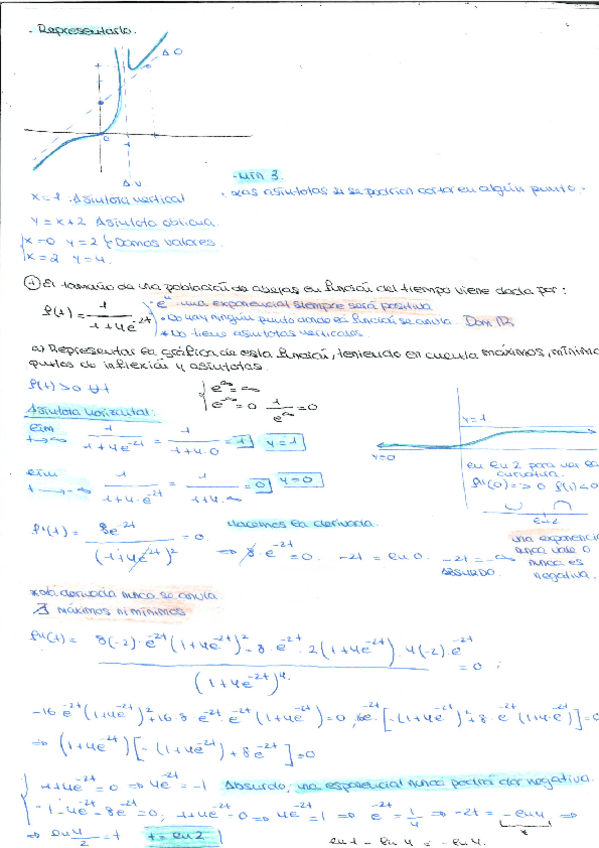 - Representarlo.
A.O
0
1
A.V
- Min 3.
x=1 . Asíntota vertical
· Las asíntotas si se podrían cortar en algún punto.
y = x+2 Asíntota oblicua.
x=0 y=2 } Damos valores.
x=2 y=4.
① El tamaño de una población de abejas en función del tiempo viene dada por:
f(t) = 1 / 1+4e^-2t
e^u una exponencial siempre será positiva
* No hay ningún punto donde la función se anula. Dom ℝ.
* No tiene asíntotas verticales.
a) Representar la gráfica de esta función, teniendo en cuenta máximos, mínimos
puntos de inflexión y asíntotas.
f(t) > 0 ∀t
e^∞ = ∞
e^-∞ = 0 1/e^∞ = 0
Asíntota horizontal:
lim t→∞ 1/1+4e^-2t = 1/1+4·0 = 1 y=1
y=1
y=0
lim t→-∞ 1/1+4·e^-2t = 1/1+4·∞ = 0 y=0
en ln 2 para ver la
curvatura.
f''(0) => 0 f(1)<0
ln 2
f'(t) = 8e^-2t / (1+4e^-2t)^2 = 0.
Hacemos la derivada.
=> 8·e^-2t = 0. -2t = ln 0. -2t = -∞
ABSURDO.
una exponencial
nunca vale 0
nunca es
negativa.
* la derivada nunca se anula
∄ máximos ni mínimos
f''(t) = 8(-2)·e^-2t (1+4e^-2t)^2 - 8·e^-2t · 2(1+4e^-2t)·4(-2)·e^-2t / (1+4e^-2t)^4 = 0 ;
-16 e^-2t (1+4e^-2t)^2 + 16 8 · e^-2t · e^-2t (1+4e^-2t) = 0
=> (1+4e^-2t) [- (1+4e^-2t) + 8e^-2t] = 0
1+4e^-2t = 0 => 4e^-2t = -1 Absurdo, una exponencial nunca podrá dar negativa.
=> e^-2t = 1/4 => -2t = -ln 4 =>
=> ln 4/2 = t t = ln 2
ln 1 - ln 4 = - ln 4.